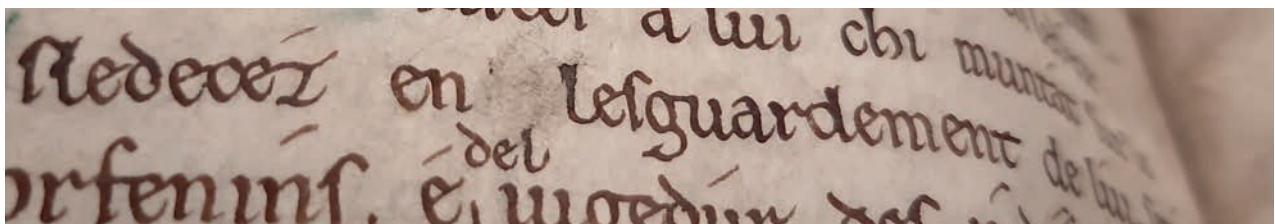 a lui chi muntat
ſledecez en leſguardement de lui
del
orfeninſ. é iugedúr deſ